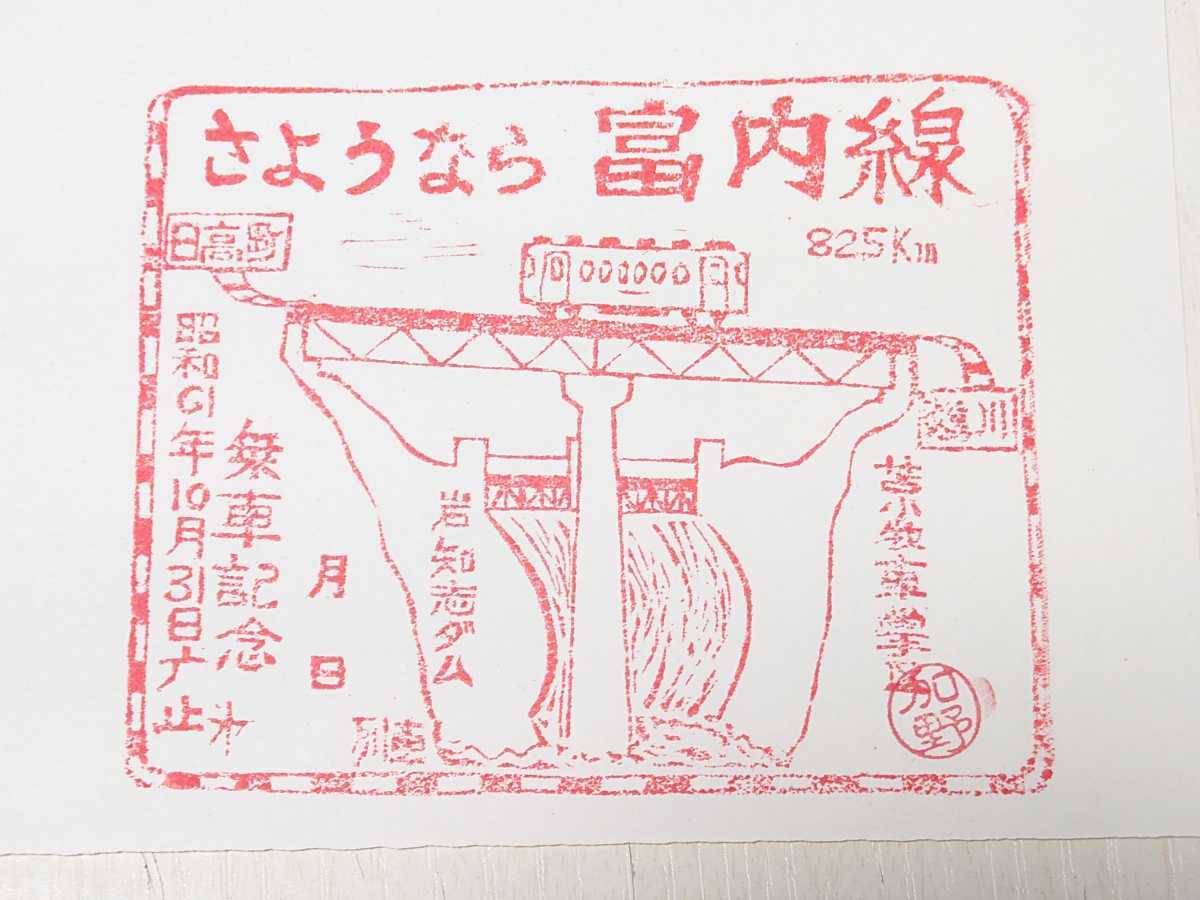 さようなら 富内線
日高町
825Km
鵡川
昭和61年10月31日廃止
乗車記念
月 日
列車
岩知志ダム
苫小牧車掌区
加野